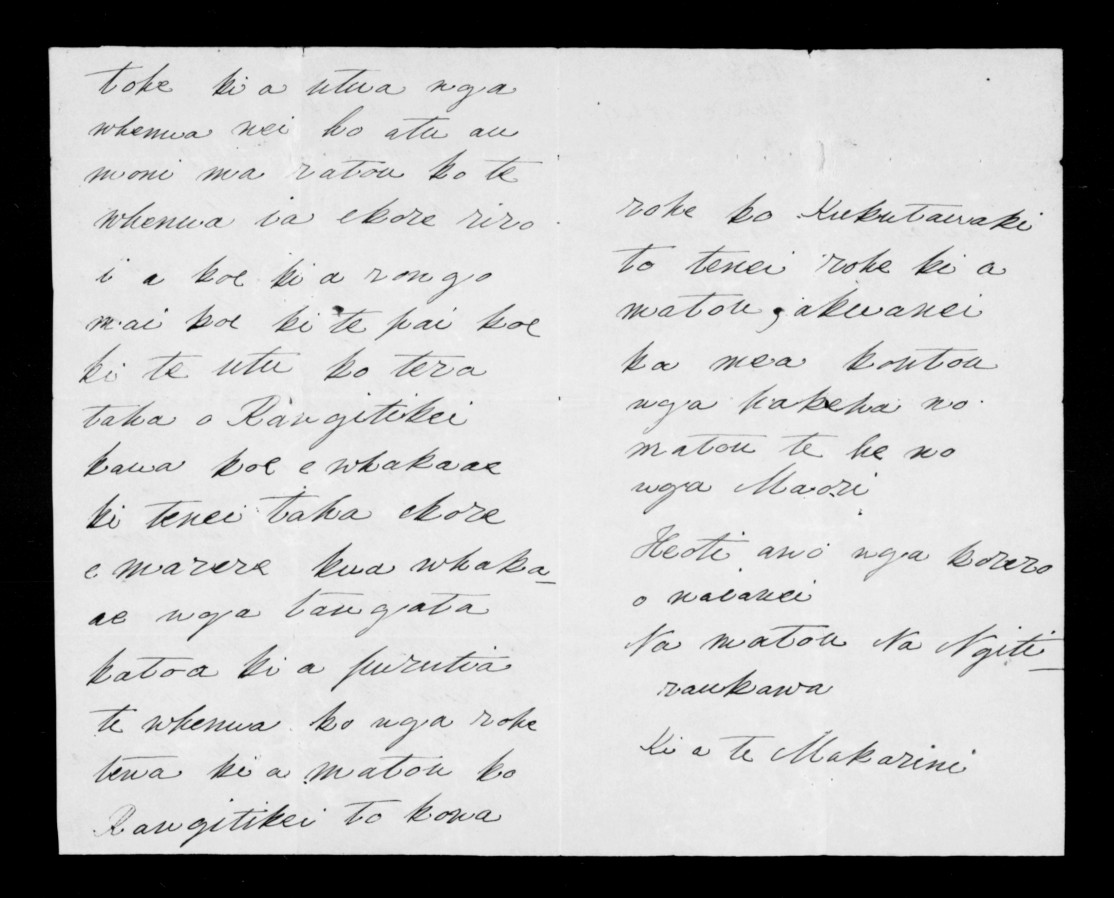 tohe kia utua nga
whenua nei ho atu au
moni ma ratou ko te
whenua ia ekore riro
i a koe kia rongo
mai koe ki te pai koe
ki te utu ko tera
taha o Rangitikei
kaua koe e whakaae
ki tenei taha ekore
e marere kua whaka_
ae nga tangata
katoa kia purutia
te whenua ko nga rohe
tena ki a matou ko
Rangitikei to kona
rohe ko Kukutauaki
to tenei rohe ki a
matou, akuanei
ka mea koutou
nga pakeha no
matou te he no
nga Maori
Heoti ano nga korero
o naianei
Na matou Na Ngiti_
raukawa
Ki a te Makarini